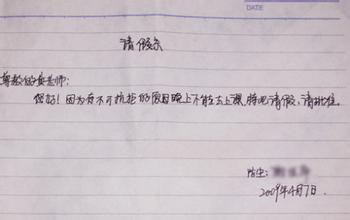 DATE
请假条
尊敬的老师:
您好!因为有不可抗拒的原因晚上不能去上课,特此请假,请批准。
陪生:
2009年4月7日.